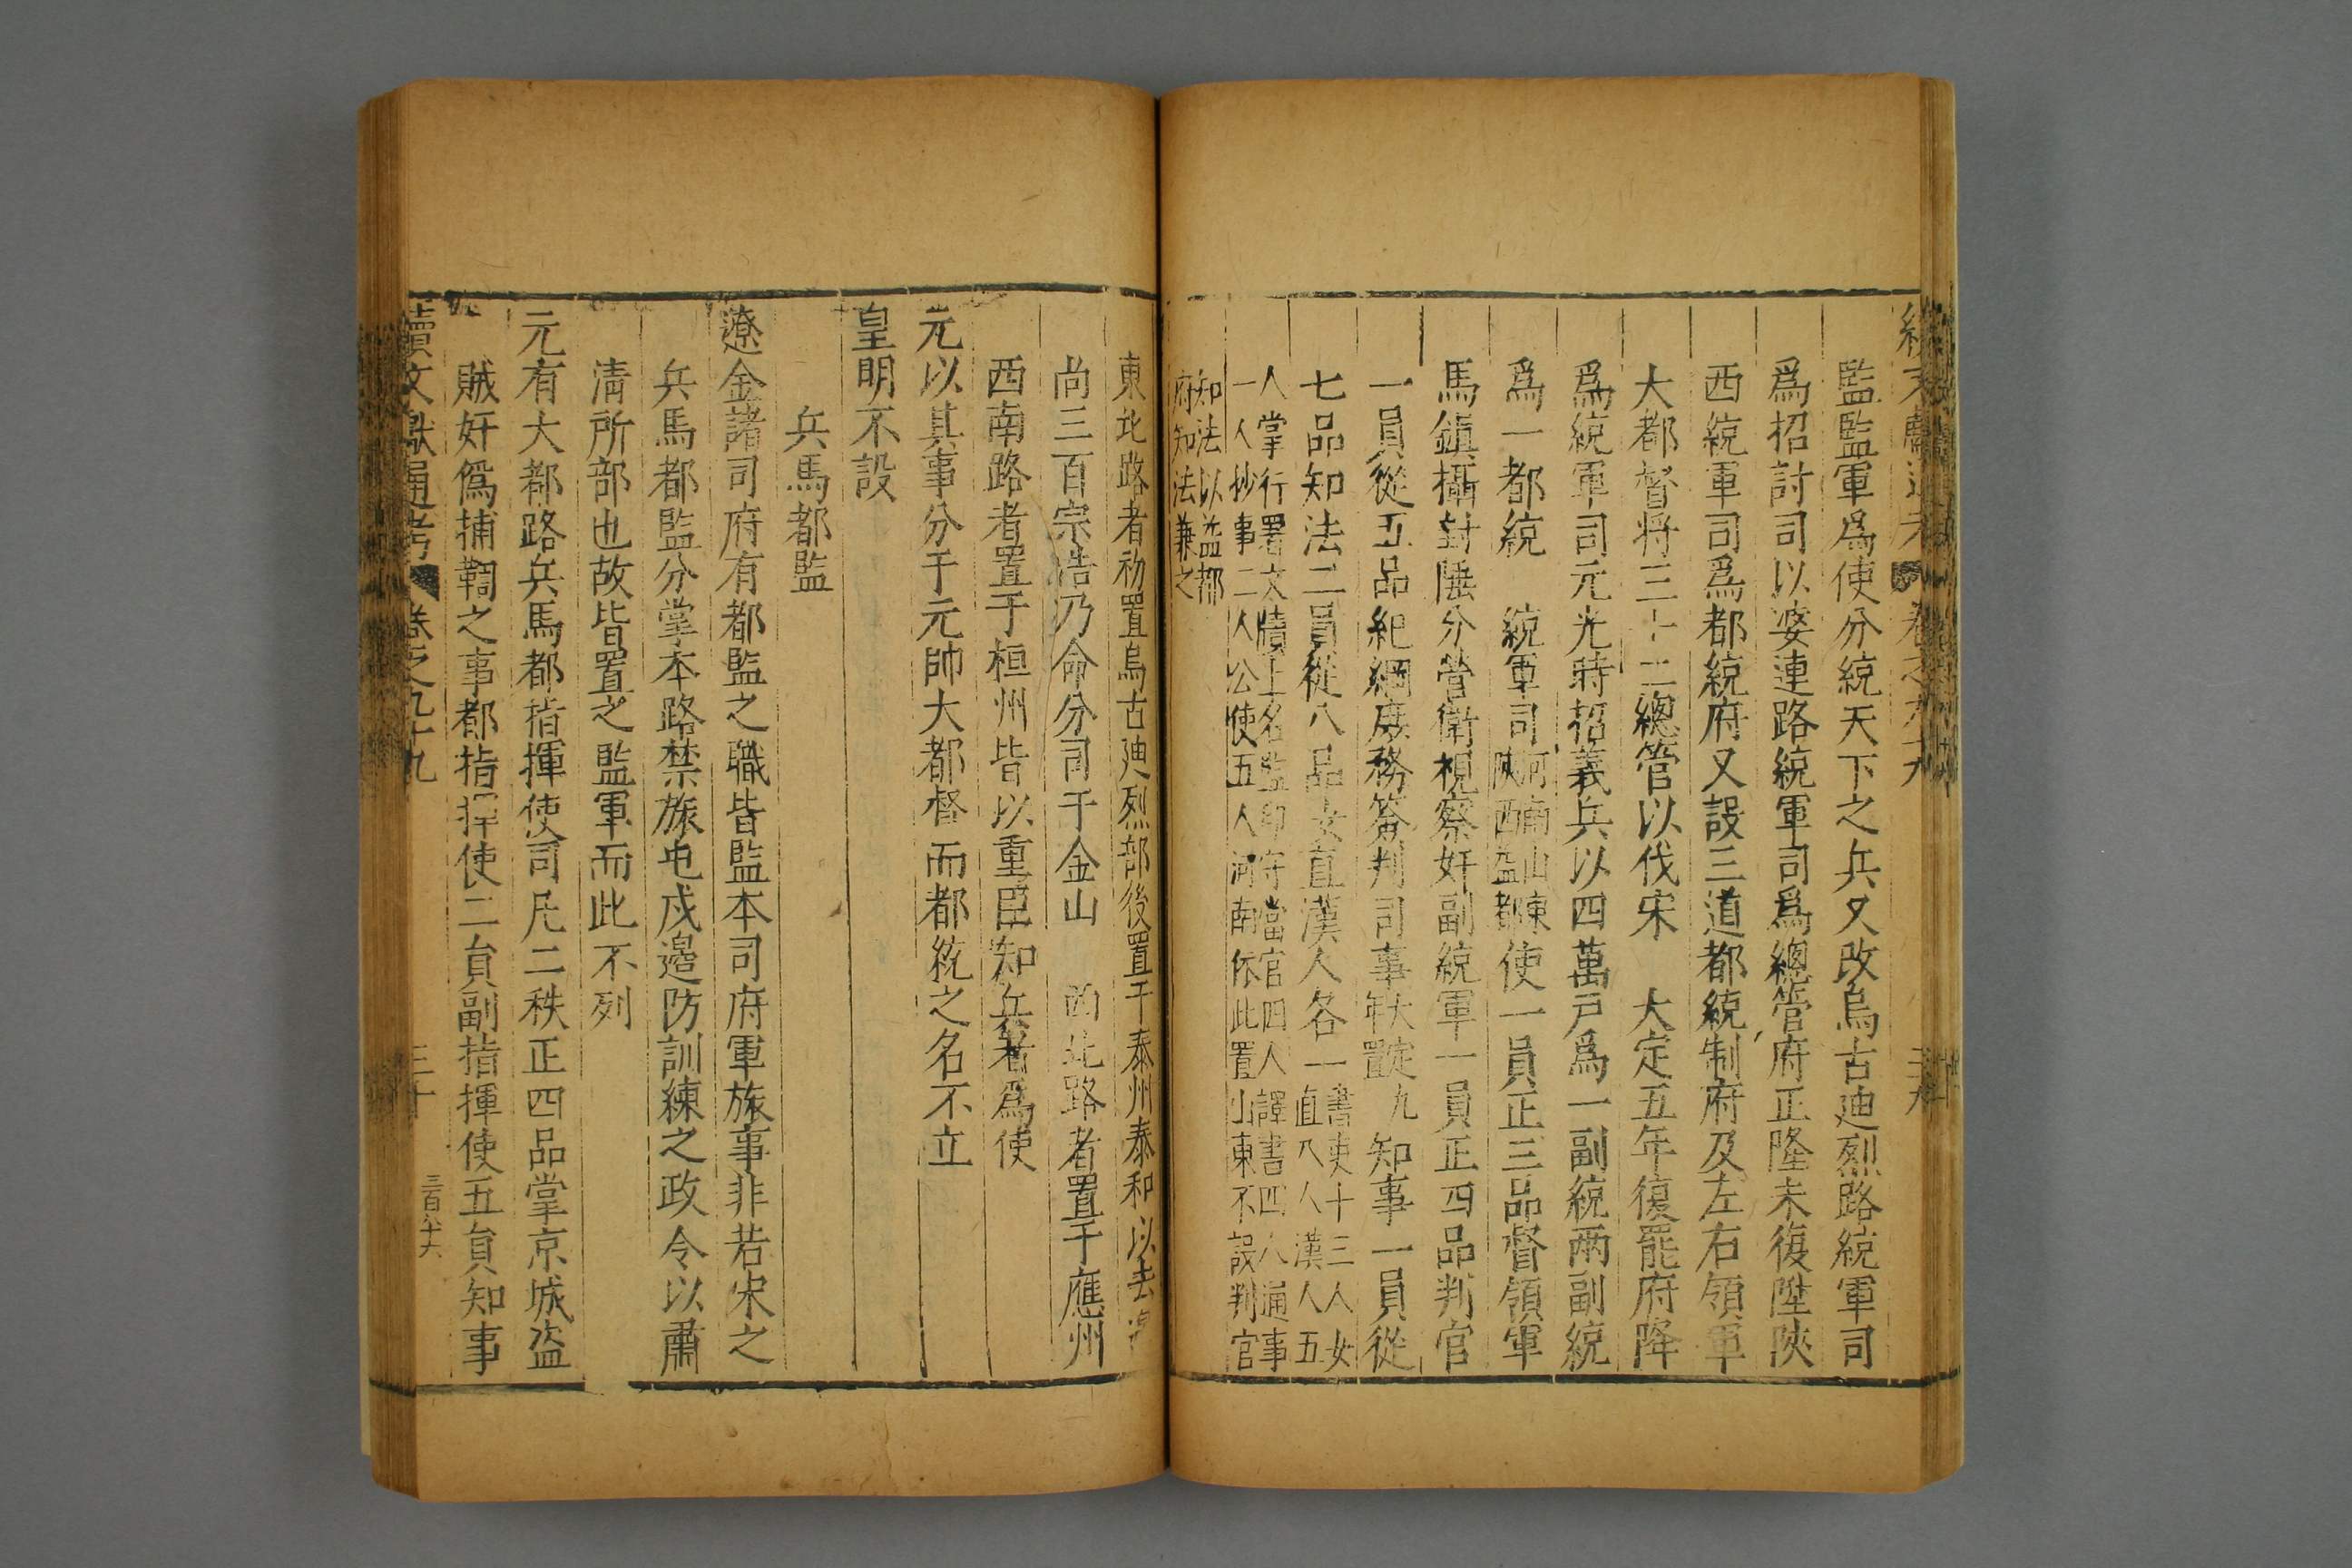 監監軍爲使分統天下之兵又改烏古迪烈路統軍司
爲招討司以婆連路統軍司爲總管府正隆末復陞陝
西統軍司爲都統府又設三道都統制府及左右領軍
大都督將三十二總管以伐宋　大定五年復罷府降
爲統軍司元光時招義兵以四萬戸爲一副統兩副統
爲一都統　統軍司河南山東陝西益都使一員正三品督領軍
馬鎮攝封陲分營衛視察奸副統軍一員正四品判官
一員從五品紀綱庶務簽判司事大定九年置知事一員從
七品知法二員從八品女直漢人各一書吏十三人女直八人漢人五
人掌行署文牘上名監印守當官四人譯書四人通事
一人抄事二人公使五人河南依此置山東不設判官
知法以益都府知法兼之
東北路者初置烏古迪烈部後置于泰州泰和以去
尚三百宗浩乃命分司于金山　西北路者置于應州
西南路者置于桓州皆以重臣知兵者爲使
元以其事分于元帥大都督而都統之名不立
皇明不設
兵馬都監
遼金諸司府有都監之職皆監本司府軍旅事非若宋之
兵馬都監分掌本路禁旅屯戍邊防訓練之政令以肅
清所部也故皆置之監軍而此不列
元有大都路兵馬都指揮使司凡二秩正四品掌京城盜
賊奸僞捕鞫之事都指揮使二員副指揮使五員知事
續文獻通考　卷之九十九　三十　三百六十六